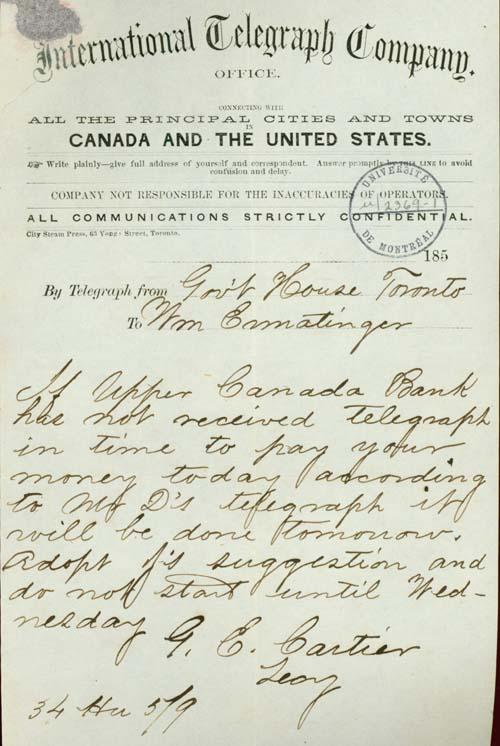 International Telegraph Company.
OFFICE.
CONNECTING WITH
ALL THE PRINCIPAL CITIES AND TOWNS
IN
CANADA AND THE UNITED STATES.
Write plainly—give full address of yourself and correspondent. Answer promptly by THIS LINE to avoid
confusion and delay.
COMPANY NOT RESPONSIBLE FOR THE INACCURACIES OF OPERATORS.
ALL COMMUNICATIONS STRICTLY CONFIDENTIAL.
City Steam Press, 63 Yonge Street, Toronto.
UNIVERSITÉ
2369-1
DE MONTRÉAL
185
By Telegraph from Gov't House Toronto
To Wm Ermatinger
If Upper Canada Bank
has not received telegraph
in time to pay your
money today according
to Mr D's telegraph it
will be done tomorrow.
Adopt J's suggestion and
do not start until Wed-
nesday
G. E. Cartier
34 5/9